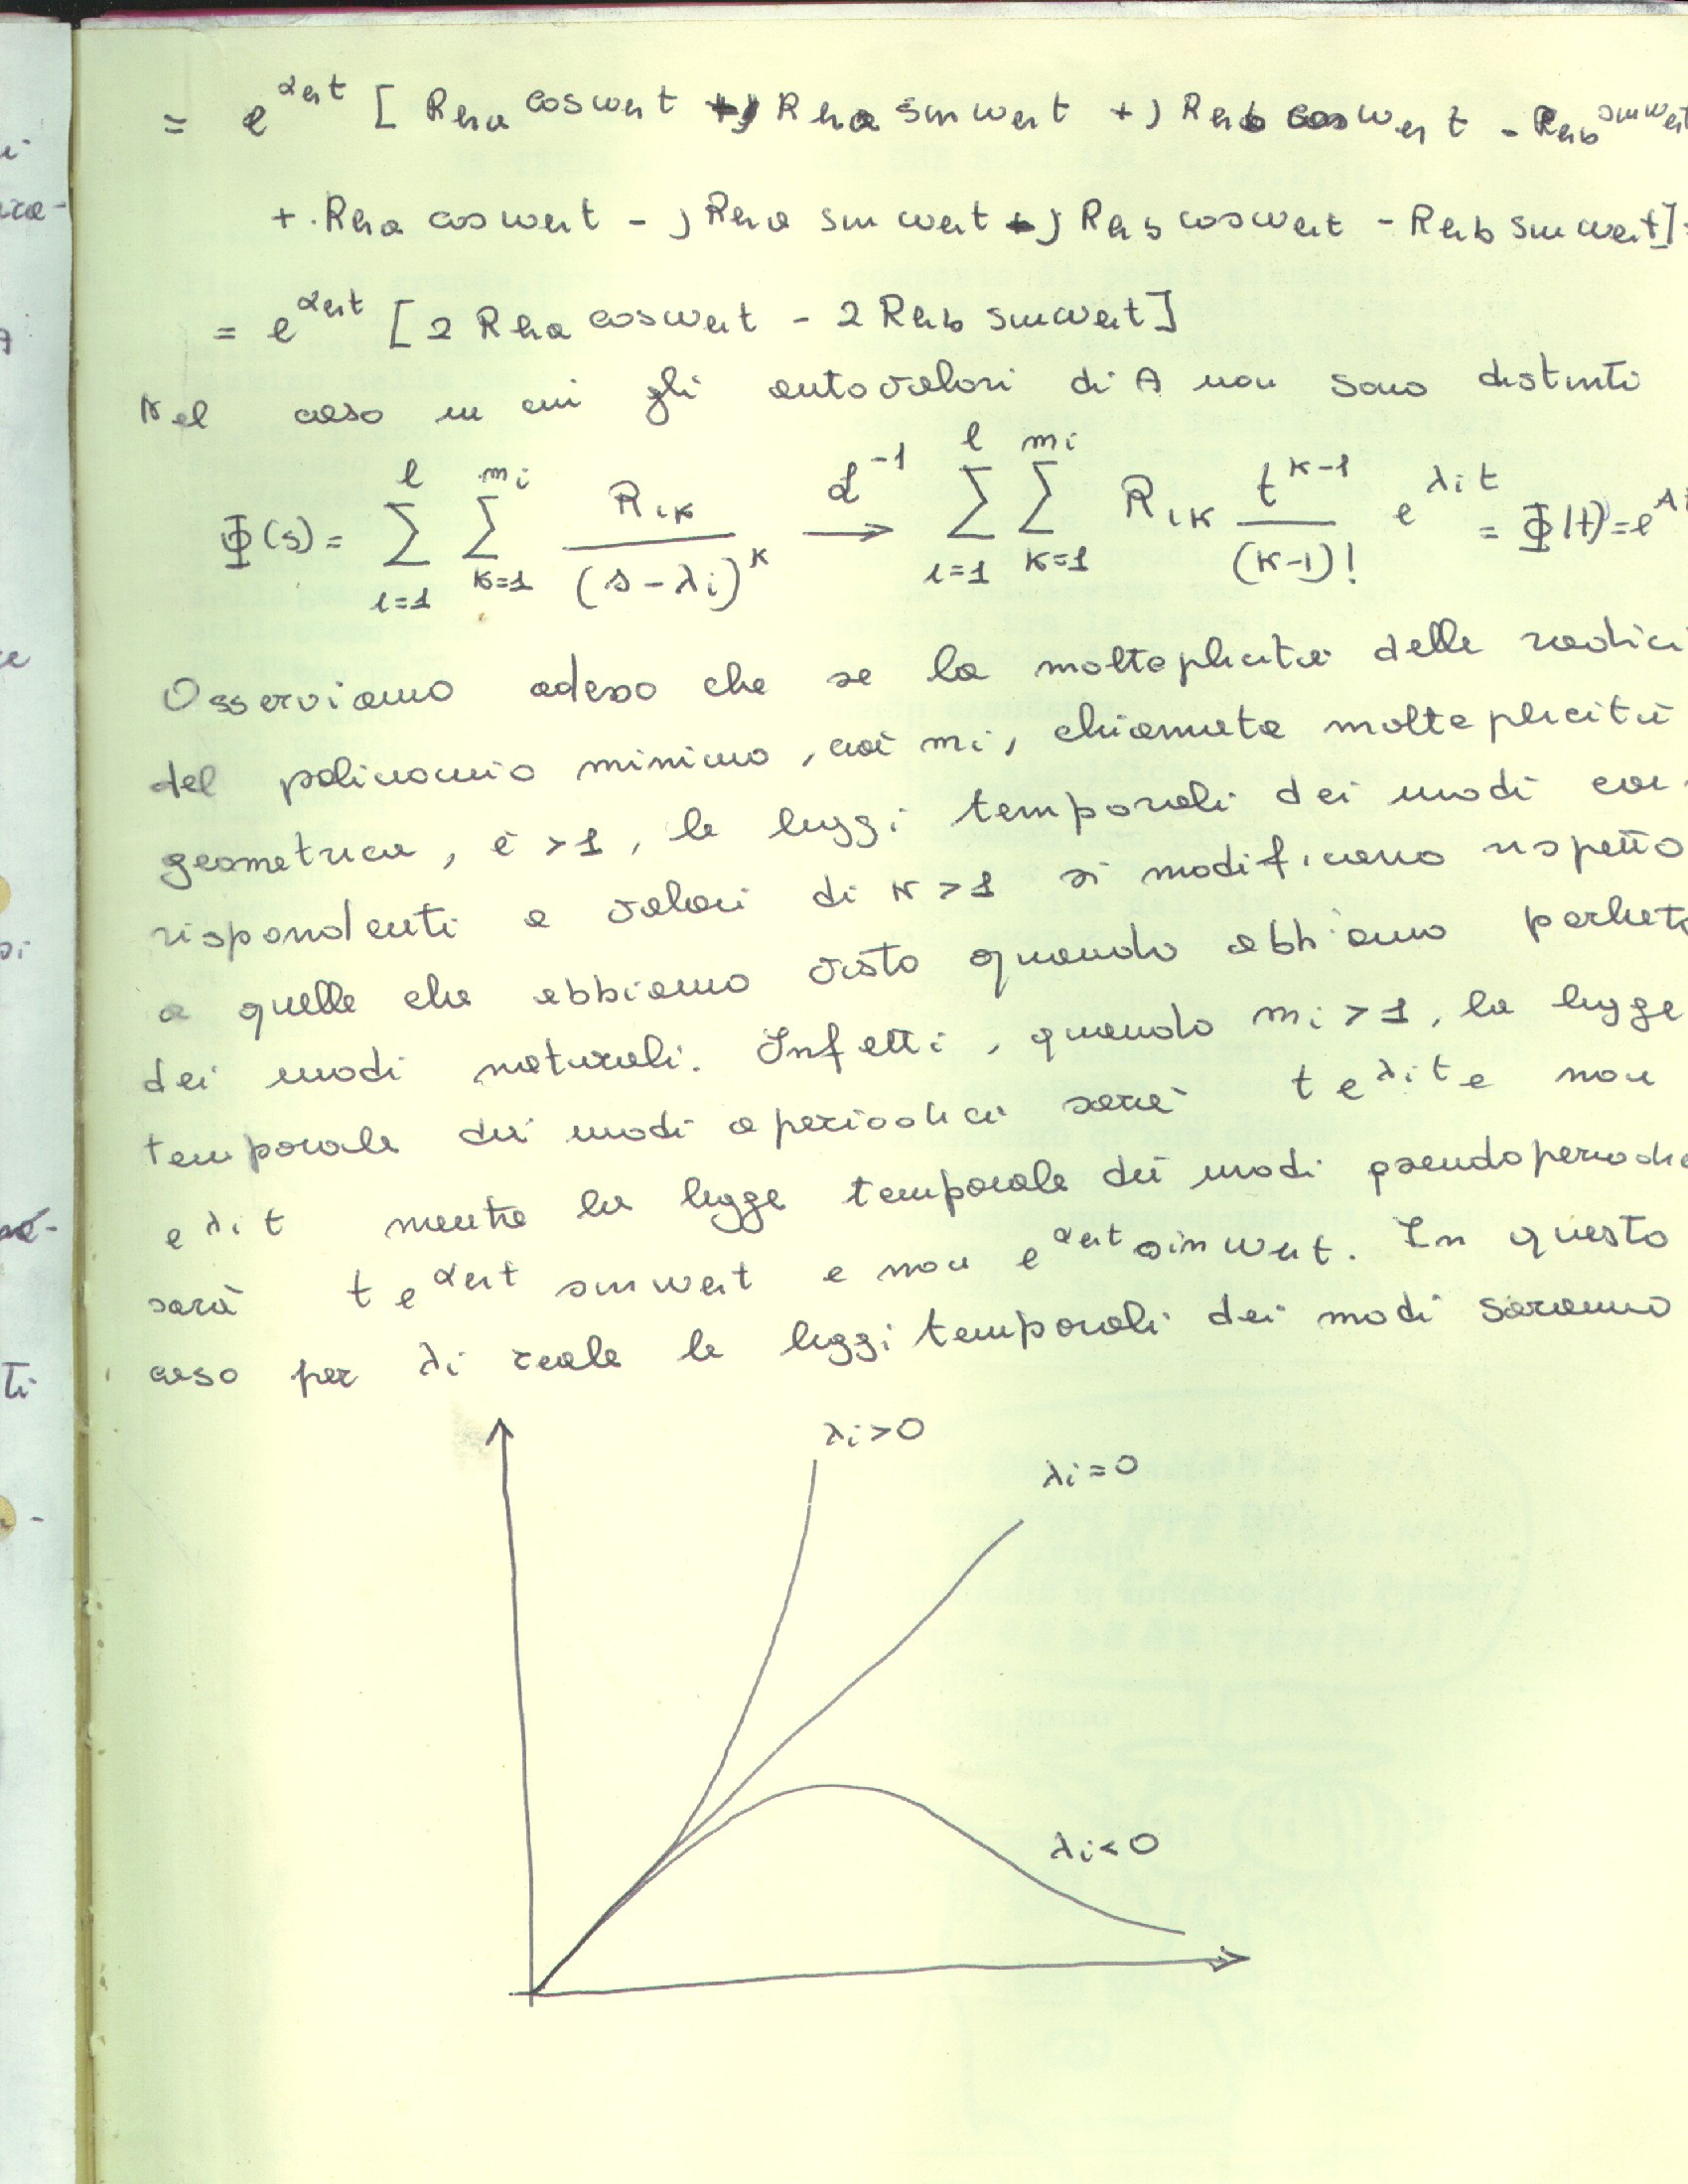 = e^{αht} [ Rha cosωht + j Rha sinωht + j Rhb cosωht - Rhb sinωht
+ Rha cosωht - j Rha sinωht - j Rhb cosωht - Rhb sinωht] =
= e^{αht} [2 Rha cosωht - 2 Rhb sinωht]
Nel caso in cui gli autovalori di A non sono distinti
Φ(s) = Σ_{i=1}^{l} Σ_{k=1}^{mi} Rik / (s - λi)^k → ℒ^{-1} Σ_{i=1}^{l} Σ_{k=1}^{mi} Rik t^{k-1} / (k-1)! e^{λit} = Φ(t) = e^{A
Osserviamo adesso che se la molteplicità delle radici
del polinomio minimo, cioè mi, chiamata molteplicità
geometrica, è >1, le leggi temporali dei modi cor-
rispondenti a valori di k>1 si modificano rispetto
a quelle che abbiamo visto quando abbiamo parlato
dei modi naturali. Infatti, quando mi>1, la legge
temporale dei modi aperiodici sarà t e^{λit} e non
e^{λit} mentre la legge temporale dei modi pseudoperiodic
sarà t e^{αht} sinωht e non e^{αht} sinωht. In questo
caso per λi reale le leggi temporali dei modi saranno
λi>0
λi=0
λi<0